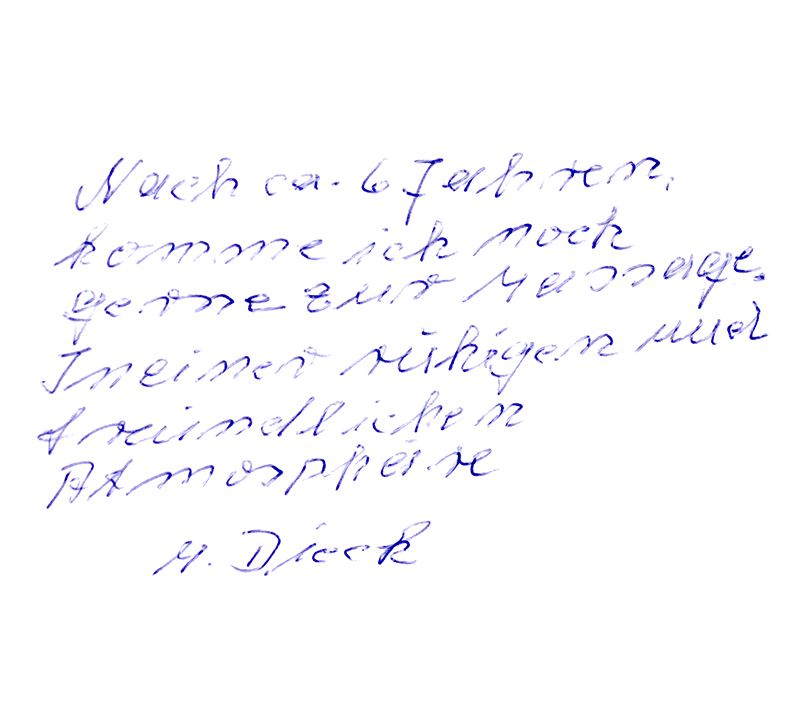 Nach ca. 6 Jahren,
komme ich noch
gerne zur Massage.
In einer ruhigen und
freundlichen
Atmosphäre
M. Dieck